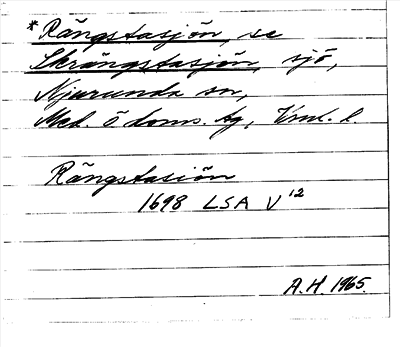 *Rängstasjön, se
Skrängstasjön, sjö,
Njurunda sn,
Med. ö doms. tg, Vnrl. l.
Rängstasiön
1698 LSA V 12
A.H. 1965.